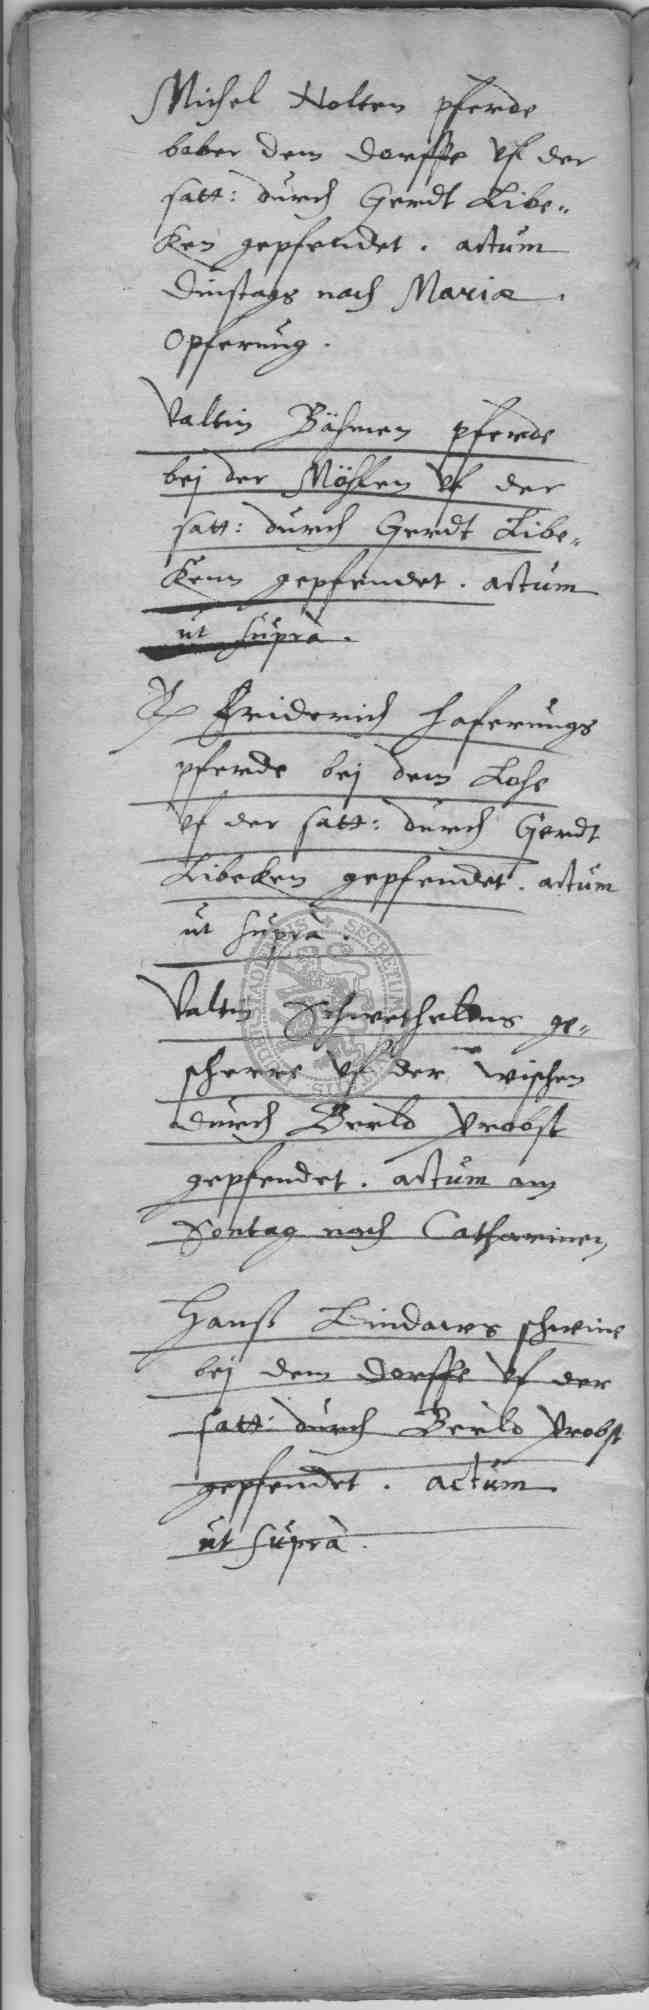 Michel Nolten pferde
bober dem dorffe vf der
satt: durch Gerdt Libe-
ken gepfendet. actum
Dinstags nach Mariæ
Opferung.
Valtin Bähmen pferde
bej der Möhlen vf der
satt: durch Gerdt Libe-
kenn gepfendet. actum
ut suprà.
Friderich Haferungs
pferde bej dem Lohe
vf der satt: durch Gerdt
Libeken gepfendet. actum
ut suprà.
Valtin ge-
scherre vf der wischen
durch Berld Probst
gepfendet. actum am
Sontag nach Catharinen
Hanß Lindaws schwine
bej dem dorffe vf der
satt: durch Berld Probst
gepfendet. actum
ut suprà.
SECRETUM